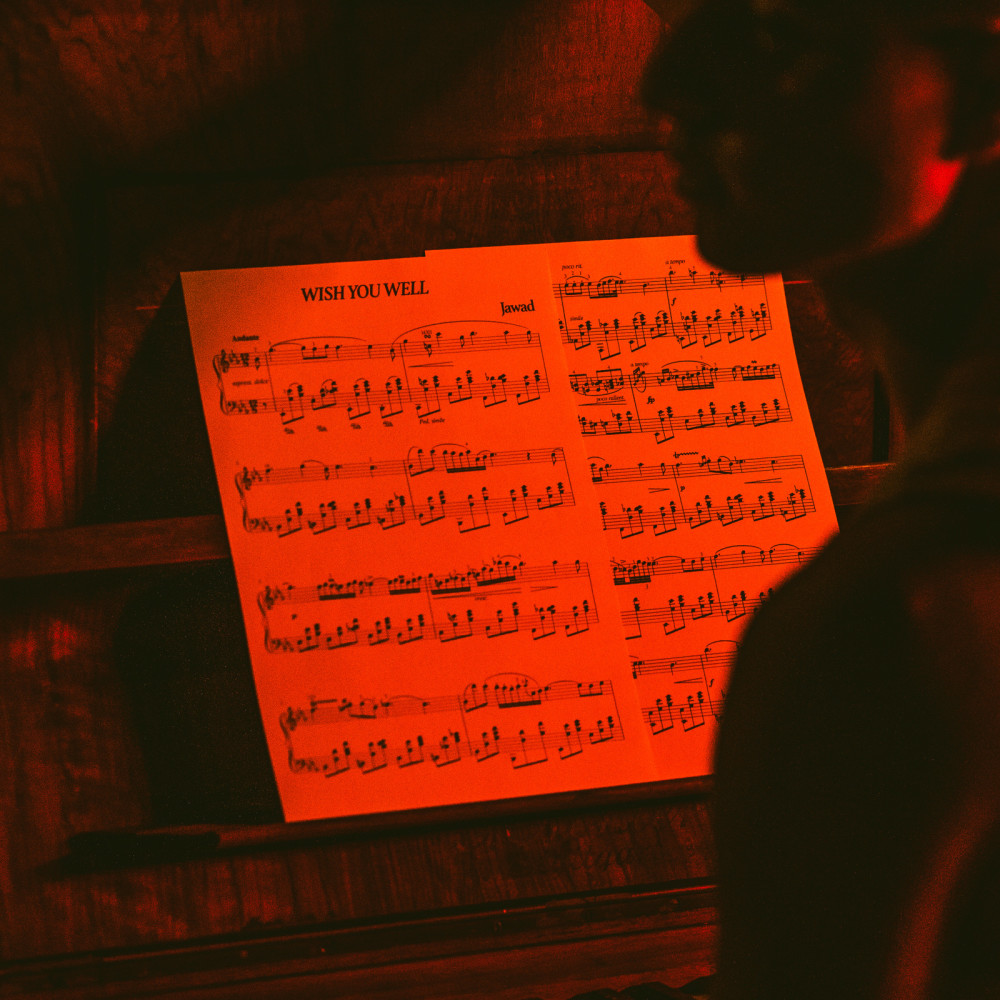 WISH YOU WELL
Jawad
Andante
espress. dolce
Ped. simile
poco rit.
a tempo
f
simile
a tempo
poco rallent.
fp
p
f